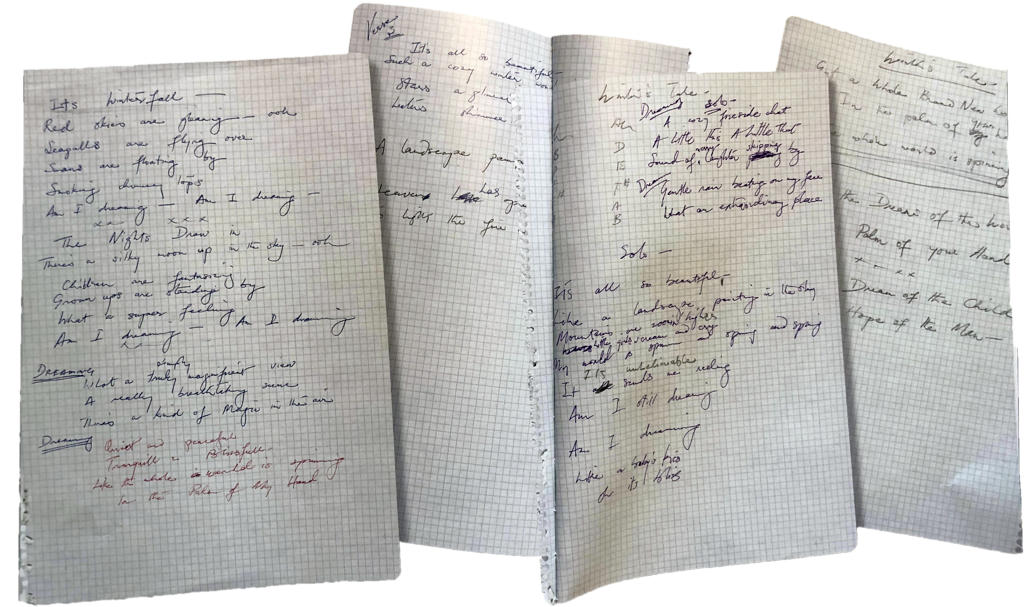 It's Winterfall —
Red skies are gleaming — ooh
Seagulls are flying over
Swans are floating by
Smoking chimney tops
Am I dreaming — Am I dreaming —
x x x x x
The Nights Draw in
There's a silky moon up in the sky — ooh
Children are fantasising
Grown ups are standing by
What a super feeling
Am I dreaming — Am I dreaming
Dreaming
simply
What a truly magnificent view
A really breathtaking scene
There's a kind of Magic in the air
Dreaming
Quiet and peaceful
Tranquill & Blissfull
Like the whole world is spinning
In the Palm of My Hand
Verse
It's all so beautiful
Such a cozy winter
Stars
A landscape
has
the fire
Winter's Tale —
Dreamy solo —
Am A cozy fireside chat
D A little this A little that
E Sound of merry laughter skipping by
F# Gentle rain beating on my face
A
B What an extraordinary place
Solo —
It's all so beautiful,
Like a landscape, painting in the sky
Mountains are zoom higher
little girls scream and cry
My world is spinning and spinning and spinning
It's unbelievable
It sends me reeling
Am I still dreaming
Am I dreaming
Winter's Tale —
a whole Brand New
In the palm of
whole world is
the Dream of the
Palm of your Hand
x — x x
Dream of the Child
Hope of the Man —